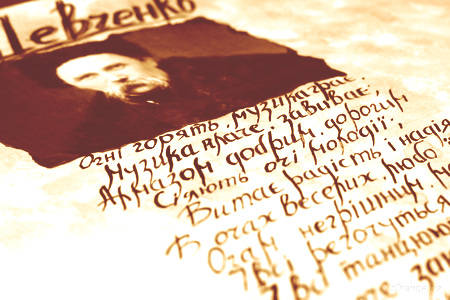 Шевченко
Огні горять, музика грає.
Музика плаче, завиває.
Алмазом добрим, дорогим
Сіяють очі молодії.
Витає радість і надія
В очах веселих, любо
Очам негрішним,
І всі регочуться
І всі